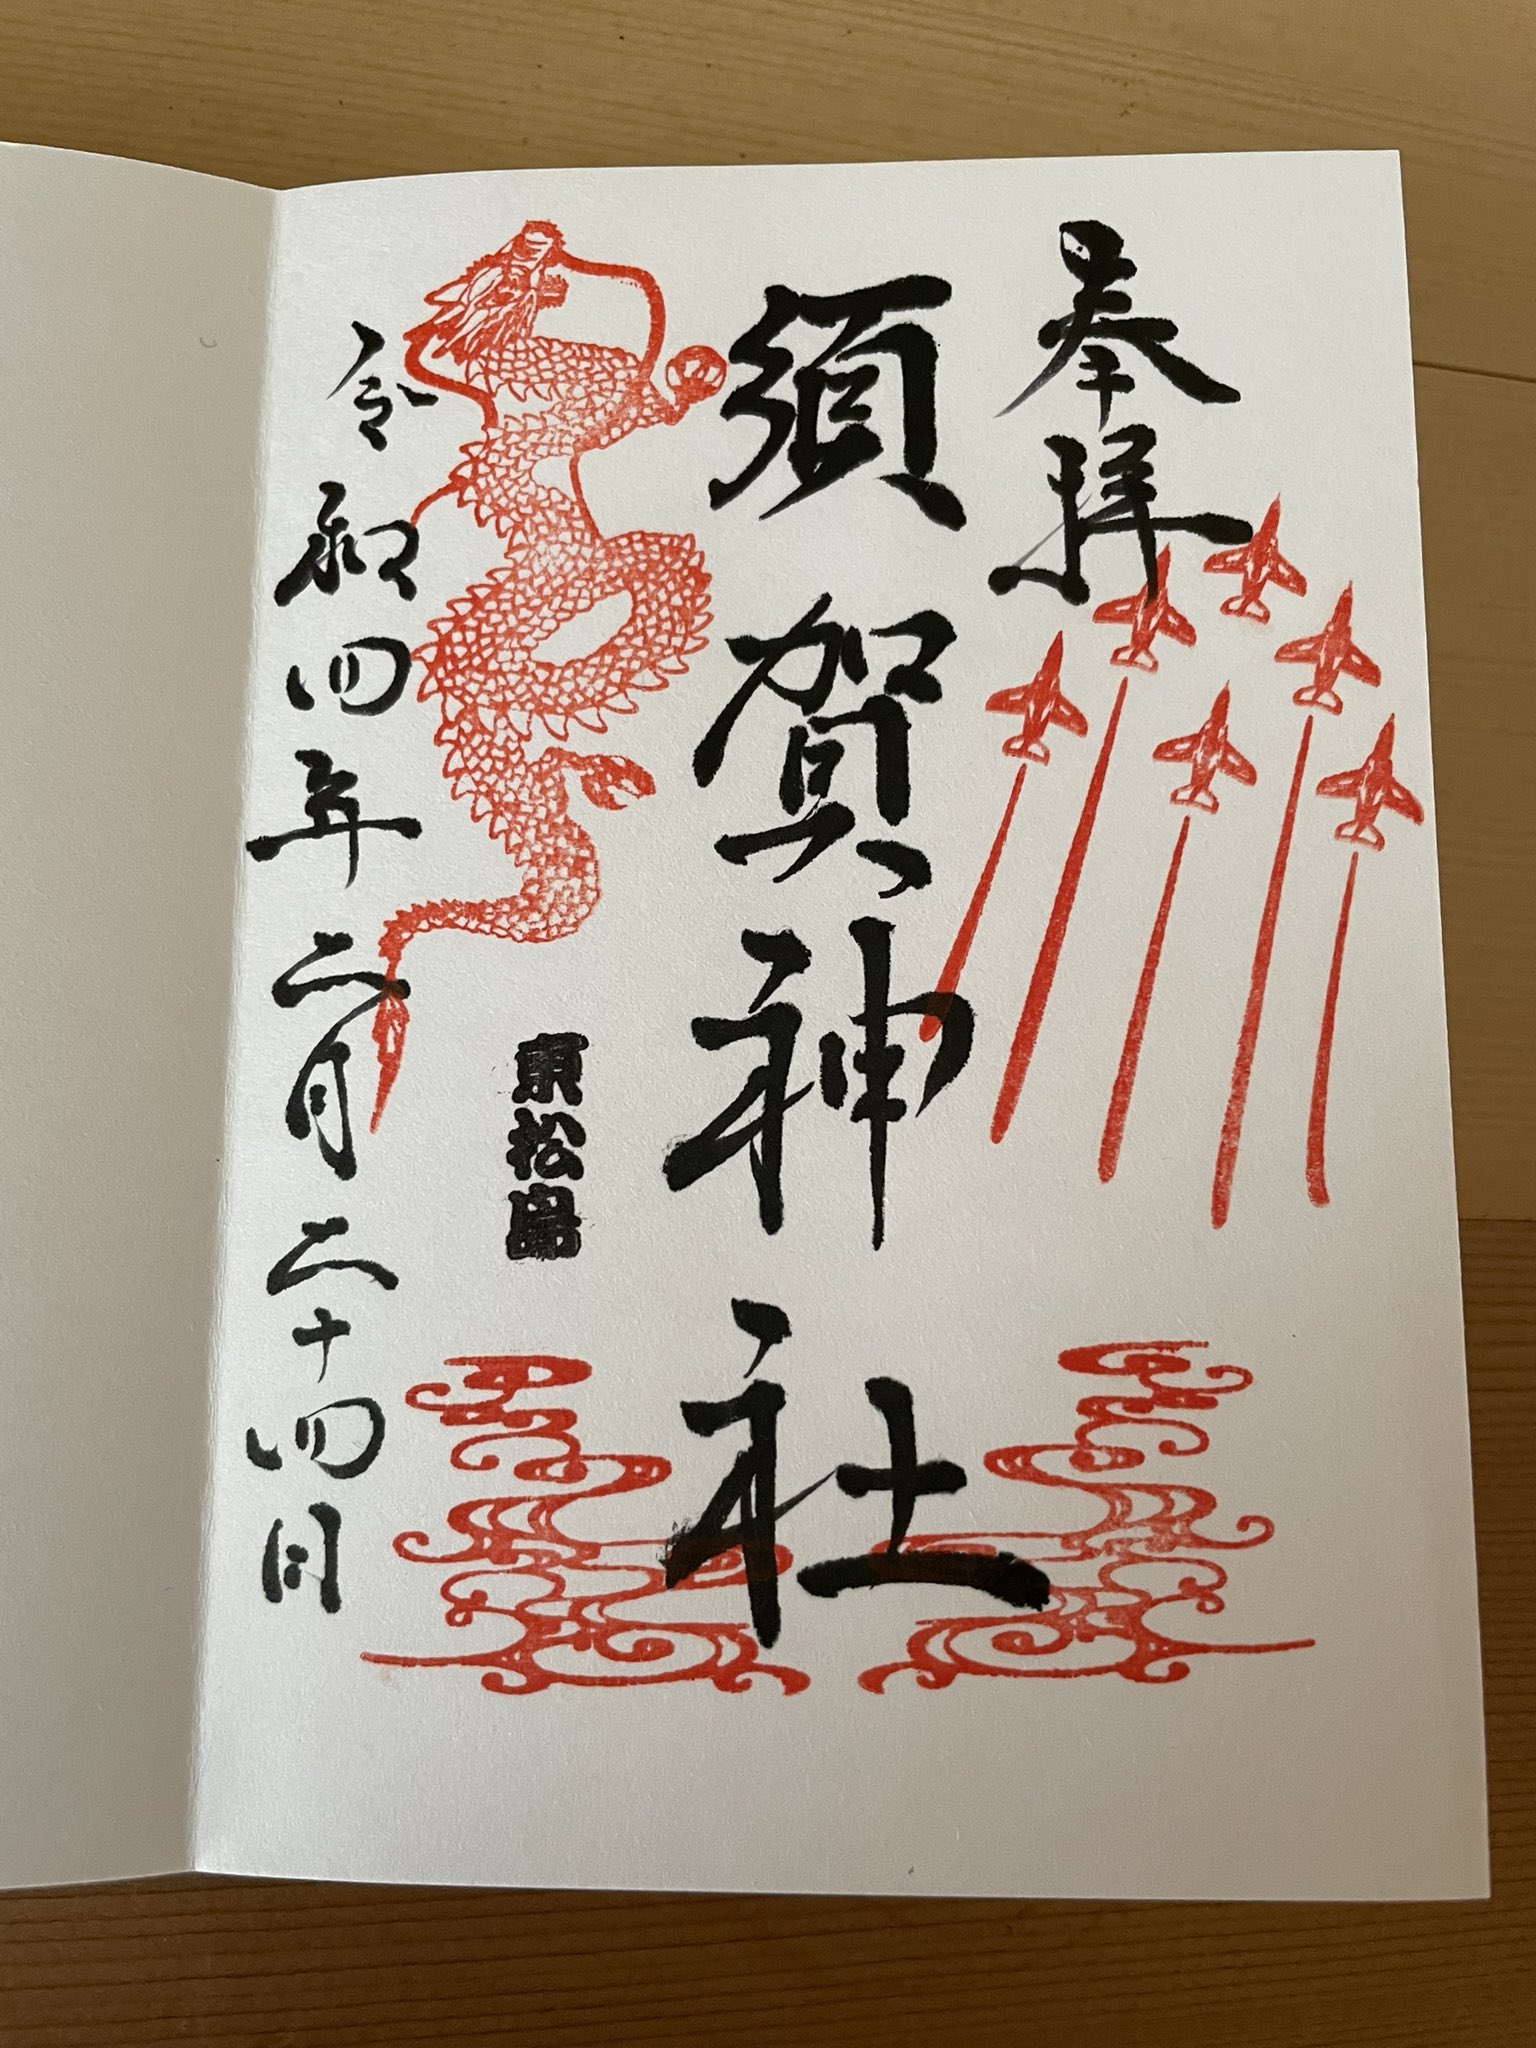 奉拝
須賀神社
東松島
令和四年二月二十四日